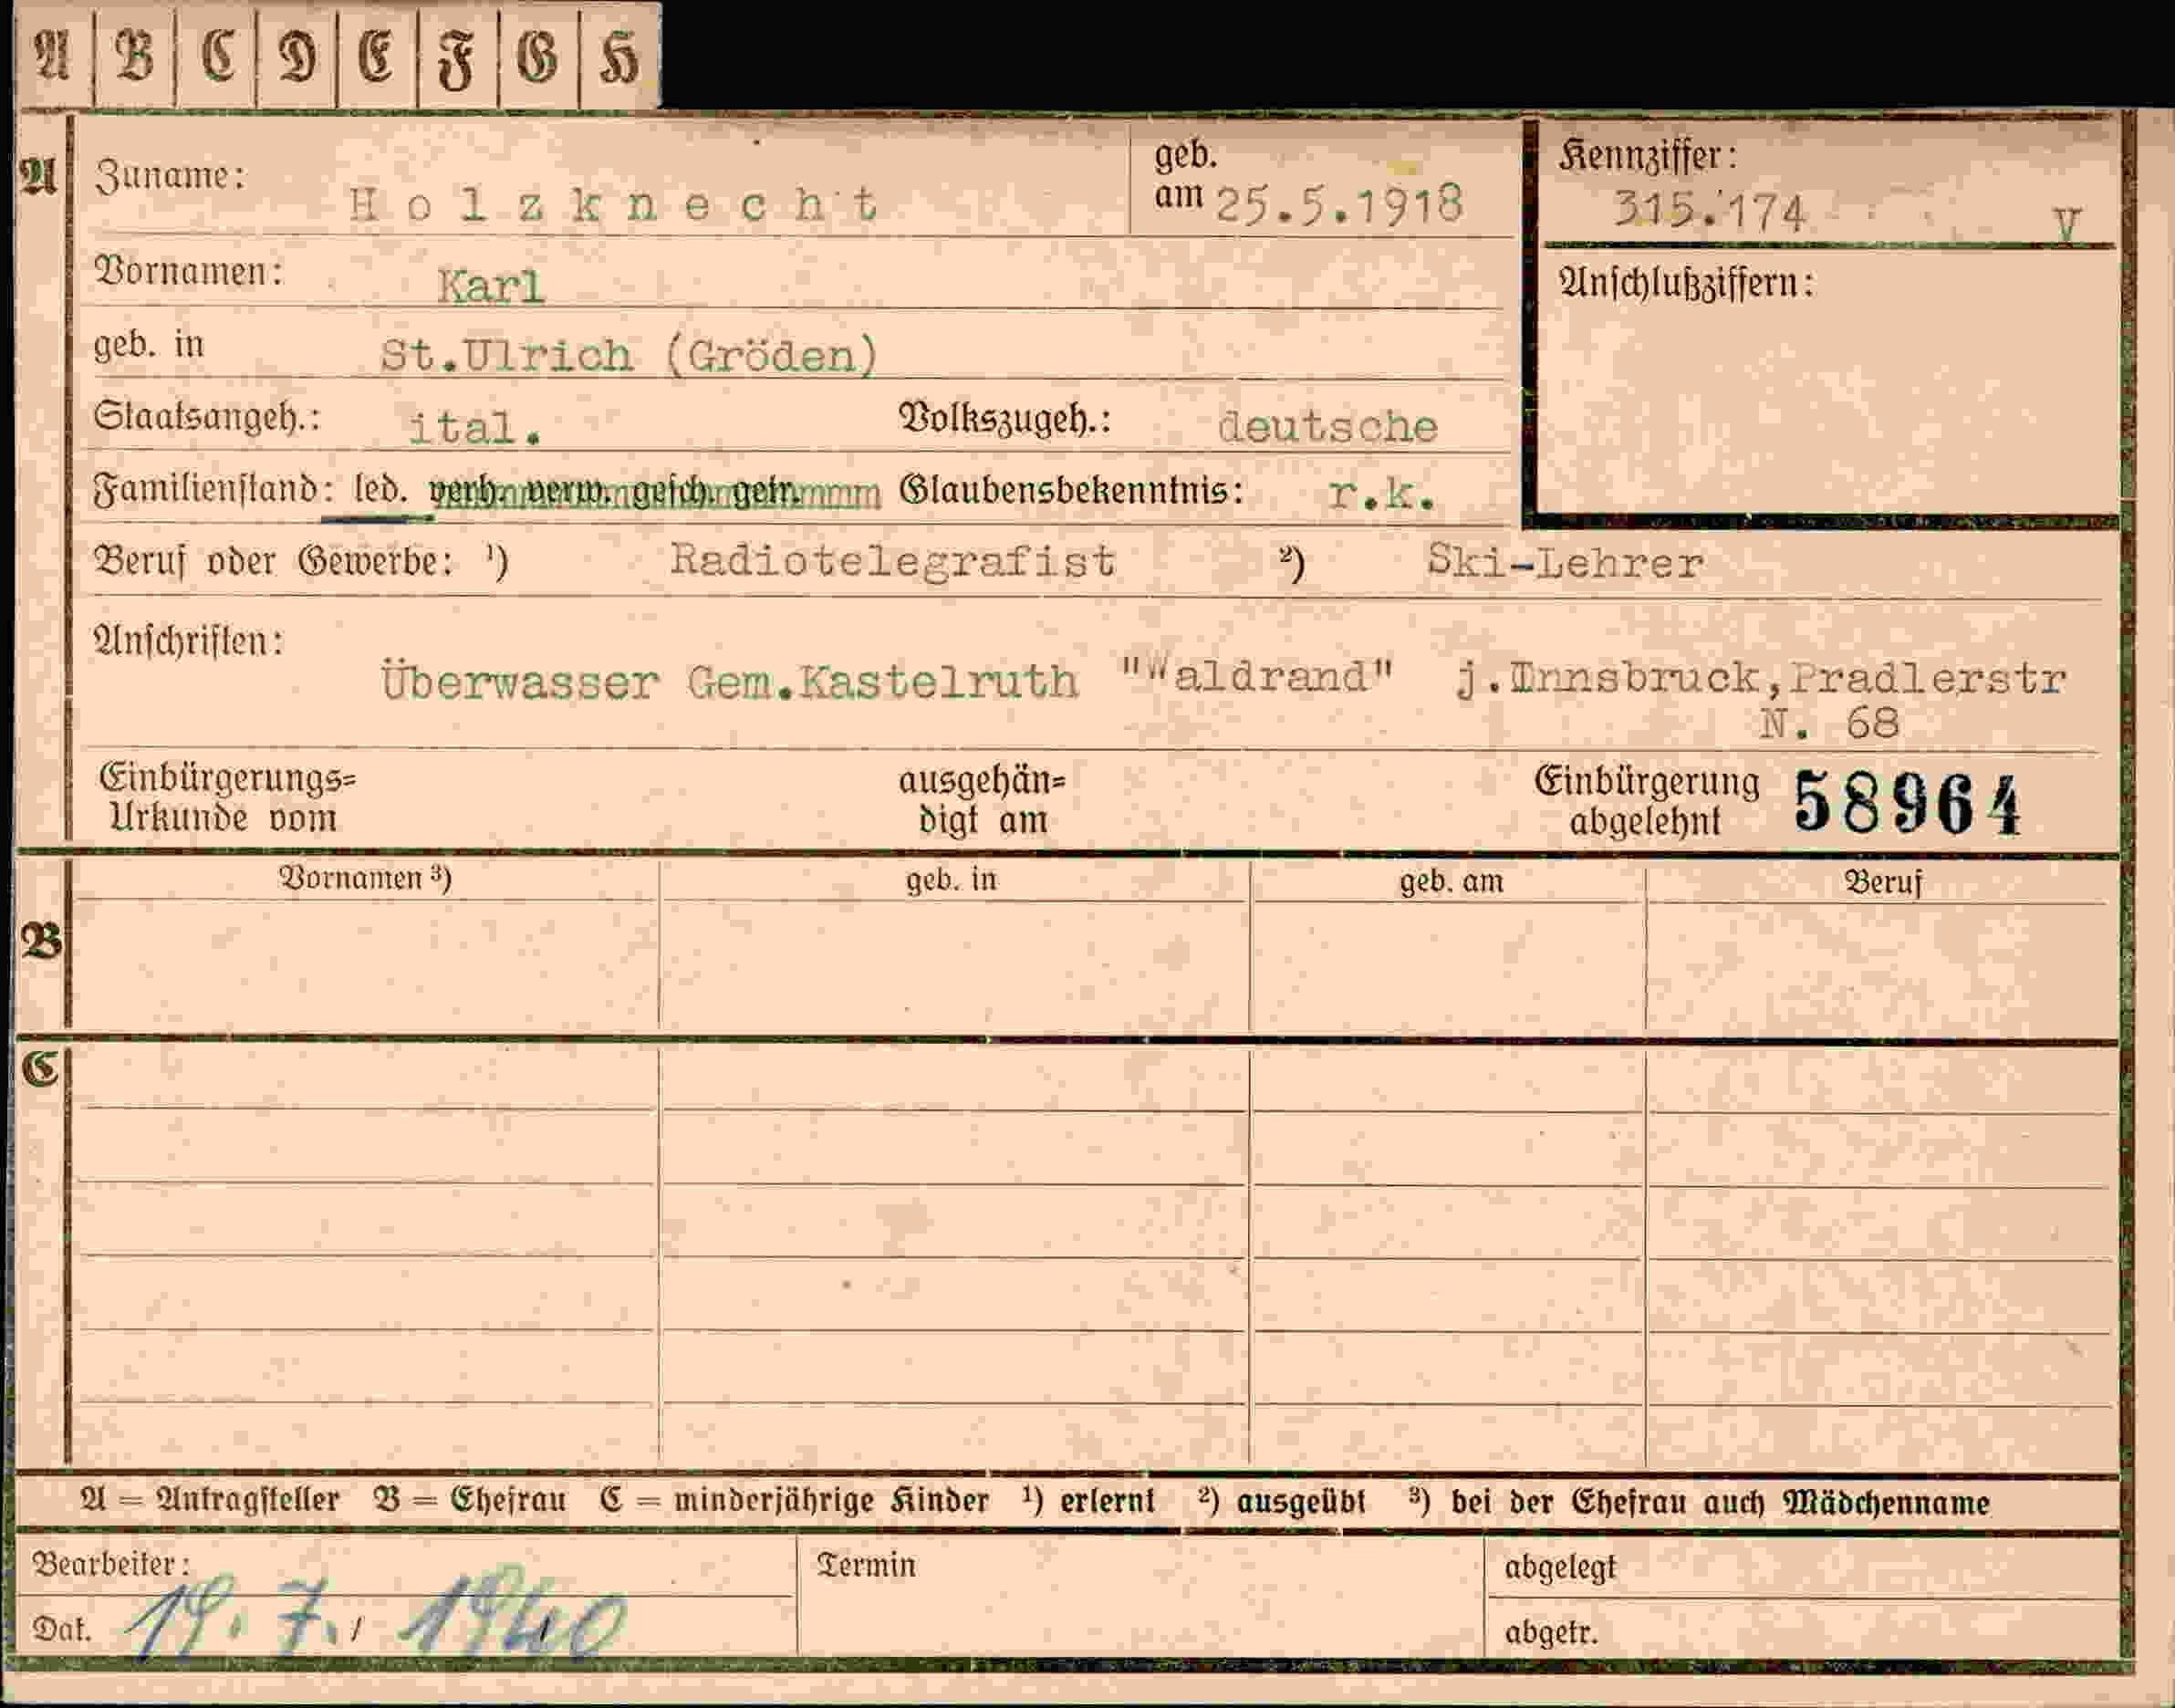 A B C D E F G H
A Zuname: Holzknecht geb. am 25.5.1918 Kennziffer: 315.174 V
Vornamen: Karl Anschlußziffern:
geb. in St.Ulrich (Gröden)
Staatsangeh.: ital. Volkszugeh.: deutsche
Familienstand: led. verh. verw. gesch. getr. Glaubensbekenntnis: r.k.
Beruf oder Gewerbe: ¹) Radiotelegrafist ²) Ski-Lehrer
Anschriften:
Überwasser Gem.Kastelruth "Waldrand" j.Innsbruck,Pradlerstr
N. 68
Einbürgerungs= ausgehän= Einbürgerung 58964
Urkunde vom digt am abgelehnt
Vornamen ³) geb. in geb. am Beruf
B
C
A = Antragsteller B = Ehefrau C = minderjährige Kinder ¹) erlernt ²) ausgeübt ³) bei der Ehefrau auch Mädchenname
Bearbeiter: Termin abgelegt
Dat. 19. 7. 1940 abgetr.